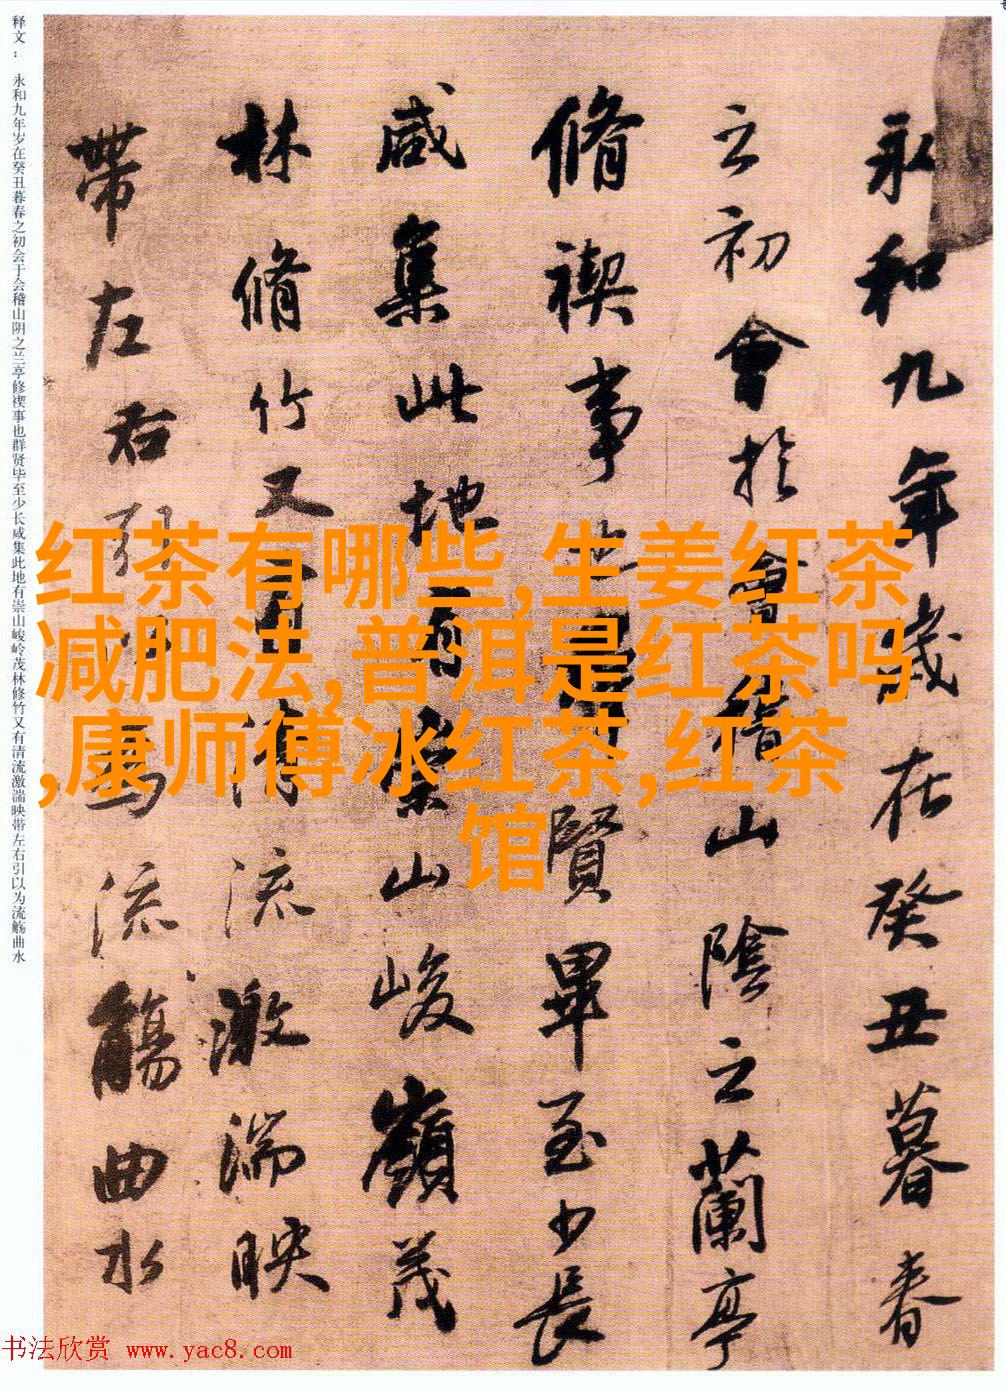 永和九年歲在癸丑暮春
之初會於會稽山陰之蘭亭
脩禊事也群賢畢至少長
咸集此地有崇山峻嶺茂
林脩竹又有清流激湍映
帶左右引以為流觴曲水
释文：永和九年岁在癸丑暮春之初会于会稽山阴之兰亭修禊事也群贤毕至少长咸集此地有崇山峻岭茂林修竹又有清流激湍映带左右引以为流觞曲水
红茶有哪些,生姜红茶
减肥法,普洱是红茶吗
,康师傅冰红茶,红茶
馆
书法欣赏 www.yac8.com